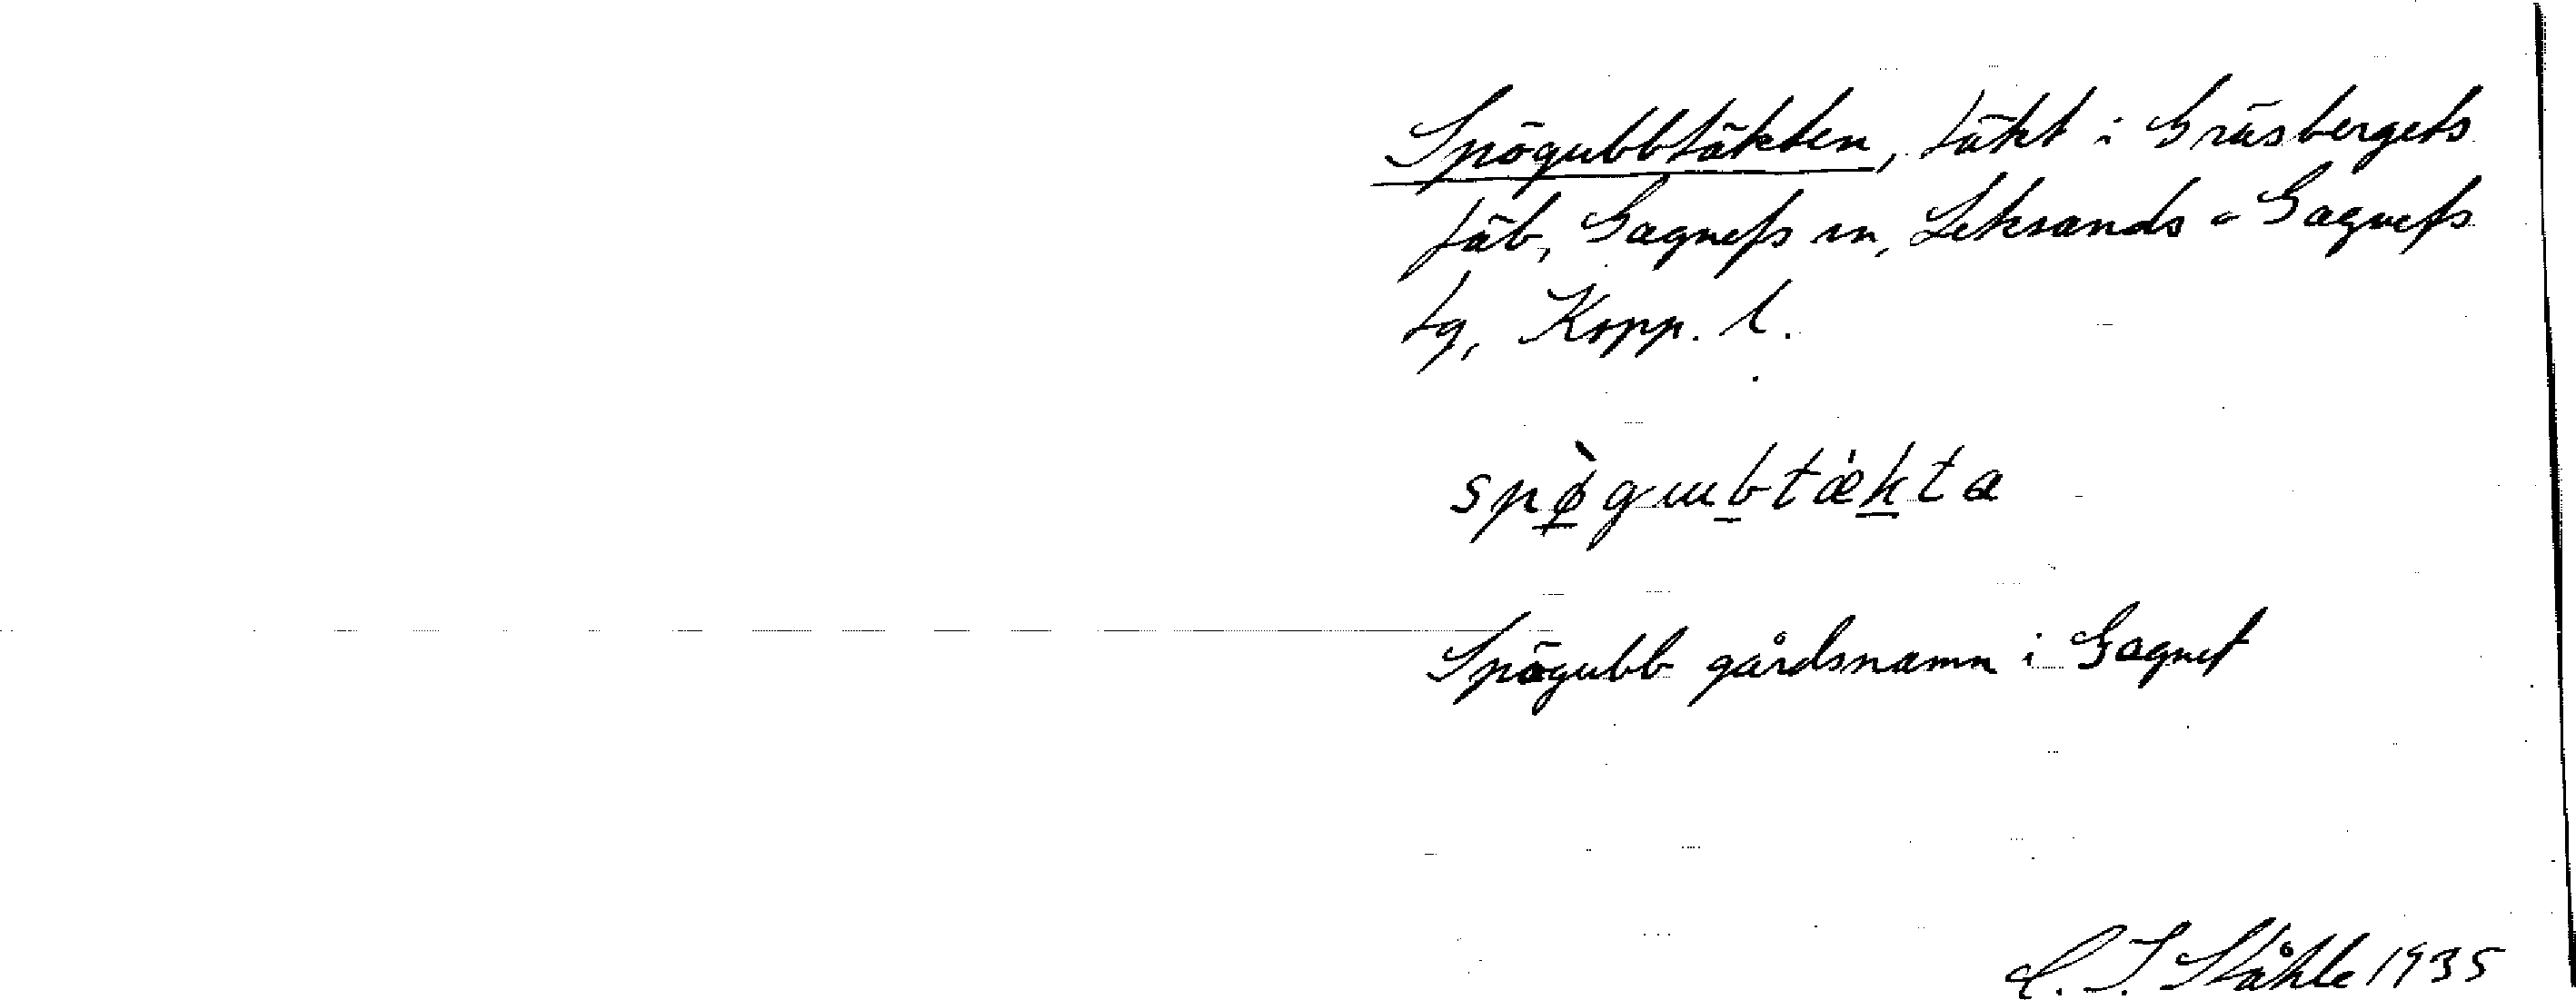 Spögubbtäkten, täkt i Gräsbergets
fäb, Gagnefs sn, Leksands o Gagnefs
tg, Kopp. l.
spø̀gɯbtækta
Spögubb gårdsnamn i Gagnef
C. I. Ståhle 1935